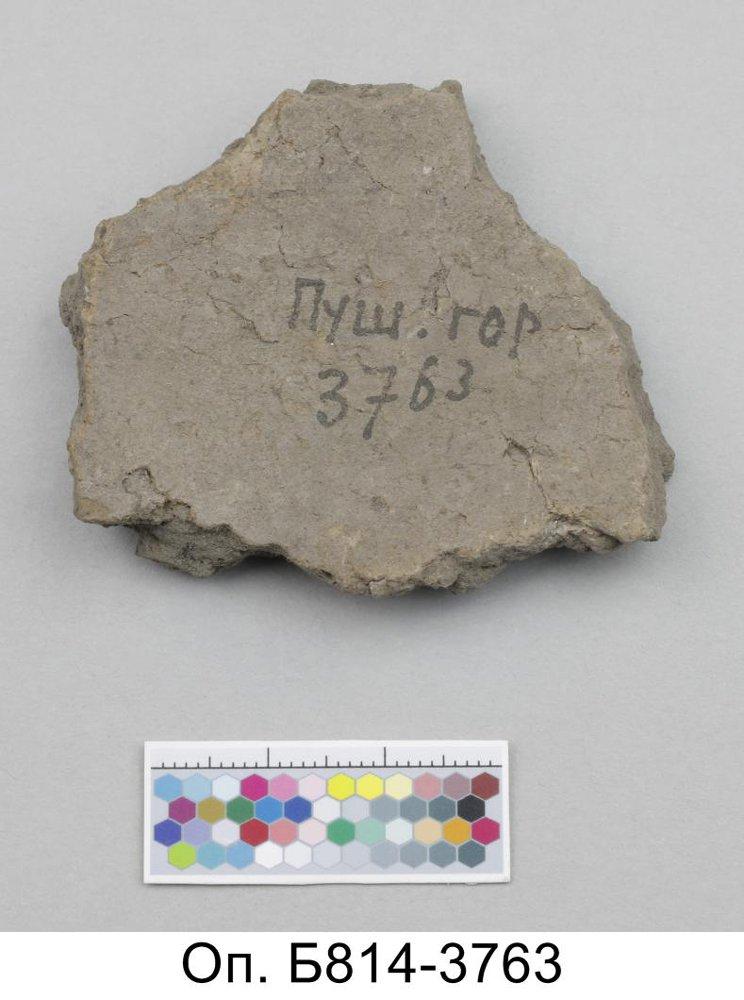 Пуш. гор
3763
Оп. Б814-3763